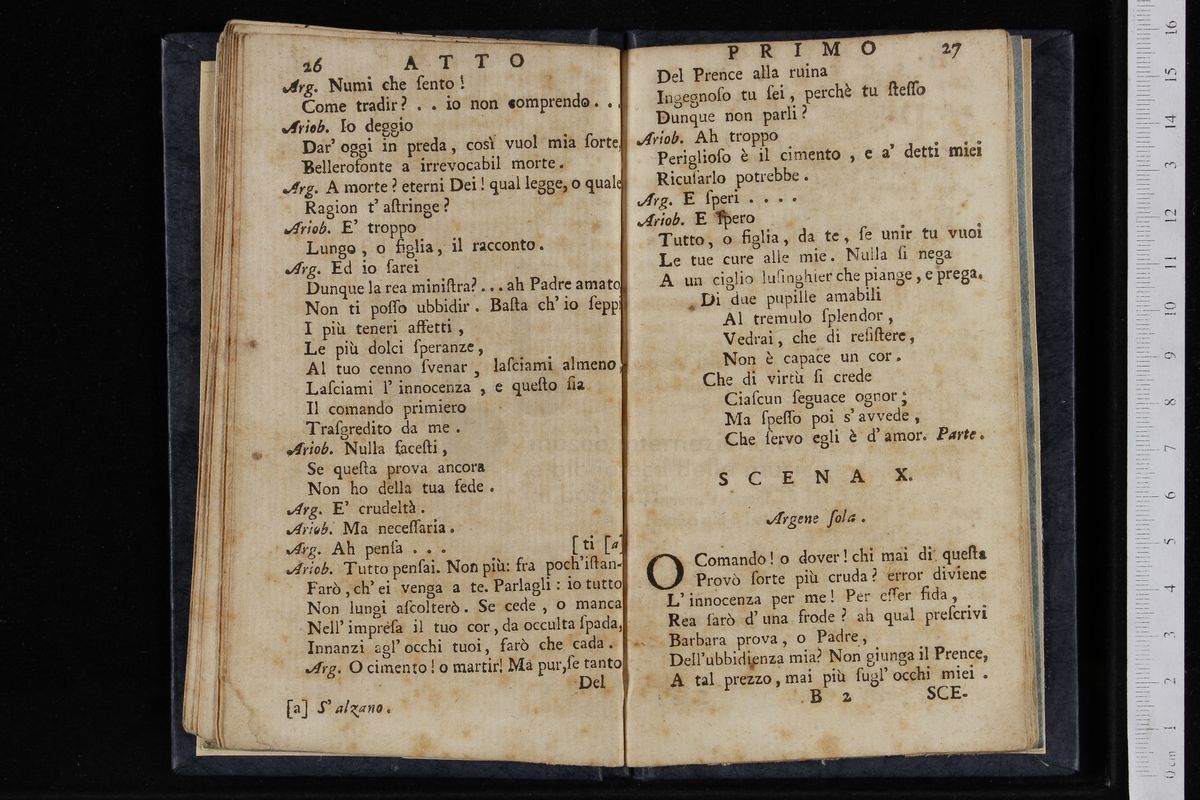 26 ATTO
Arg. Numi che ſento!
Come tradir? . . io non comprendo. . .
Ariob. Io deggio
Dar' oggi in preda, così vuol mia ſorte,
Belleroſonte a irrevocabil morte.
Arg. A morte? eterni Dei! qual legge, o quale
Ragion t' aſtringe?
Ariob. E' troppo
Lungo, o figlia, il racconto.
Arg. Ed io ſarei
Dunque la rea miniſtra? ... ah Padre amato
Non ti poſſo ubbidir. Baſta ch' io ſeppi
I più teneri affetti,
Le più dolci ſperanze,
Al tuo cenno ſvenar, laſciami almeno,
Laſciami l' innocenza, e queſto ſia
Il comando primiero
Traſgredito da me.
Ariob. Nulla faceſti,
Se queſta prova ancora
Non ho della tua fede.
Arg. E' crudeltà.
Ariob. Ma neceſſaria.
Arg. Ah penſa . . . [ti [a]
Ariob. Tutto penſai. Non più: fra poch'iſtan-
Farò, ch' ei venga a te. Parlagli: io tutto
Non lungi aſcolterò. Se cede, o manca
Nell' impreſa il tuo cor, da occulta ſpada,
Innanzi agl' occhi tuoi, farò che cada.
Arg. O cimento! o martir! Ma pur, ſe tanto
Del
[a] S' alzano.
PRIMO 27
Del Prence alla ruina
Ingegnoſo tu ſei, perchè tu ſteſſo
Dunque non parli?
Ariob. Ah troppo
Periglioſo è il cimento, e a' detti miei
Ricuſarlo potrebbe.
Arg. E ſperi . . . .
Ariob. E ſpero
Tutto, o figlia, da te, ſe unir tu vuoi
Le tue cure alle mie. Nulla ſi nega
A un ciglio luſinghier che piange, e prega.
Di due pupille amabili
Al tremulo ſplendor,
Vedrai, che di reſiſtere,
Non è capace un cor.
Che di virtù ſi crede
Ciaſcun ſeguace ognor;
Ma ſpeſſo poi s' avvede,
Che ſervo egli è d' amor. Parte.
SCENA X.
Argene ſola.
O Comando! o dover! chi mai di queſta
Provò ſorte più cruda? error diviene
L' innocenza per me! Per eſſer fida,
Rea ſarò d' una frode? ah qual preſcrivi
Barbara prova, o Padre,
Dell'ubbidienza mia? Non giunga il Prence,
A tal prezzo, mai più ſugl' occhi miei.
B 2 SCE-
0 cm 1 2 3 4 5 6 7 8 9 10 11 12 3 14 15 16